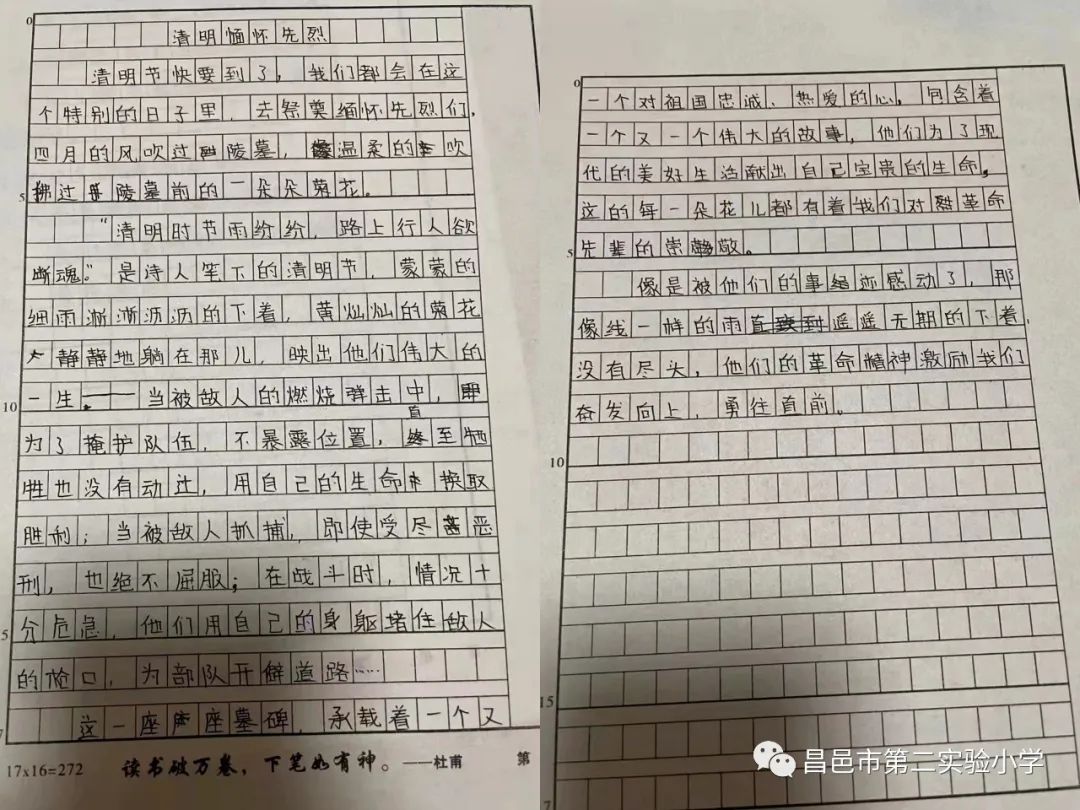 清明缅怀先烈
清明节快要到了，我们都会在这
个特别的日子里，去祭奠缅怀先烈们，
四月的风吹过陵墓，温柔的吹
拂过陵墓前的一朵朵菊花。
“清明时节雨纷纷，路上行人欲
断魂。”是诗人笔下的清明节，蒙蒙的
细雨淅淅沥沥的下着，黄灿灿的菊花
静静地躺在那儿，映出他们伟大的
一生。当被敌人的燃烧弹击中，
为了掩护队伍，不暴露位置，直至牺
牲也没有动过，用自己的生命换取
胜利；当被敌人抓捕，即使受尽恶
刑，也绝不屈服；在战斗时，情况十
分危急，他们用自己的身躯堵住敌人
的枪口，为部队开辟道路……
这一座座墓碑，承载着一个又
17x16=272
读书破万卷，下笔如有神。——杜甫
第
0
5
10
5
7
一个对祖国忠诚、热爱的心，包含着
一个又一个伟大的故事，他们为了现
代的美好生活献出自己宝贵的生命，
这的每一朵花儿都有着我们对革命
先辈的崇敬。
像是被他们的事迹感动了，那
像线一样的雨遥遥无期的下着，
没有尽头，他们的革命精神激励我们
奋发向上，勇往直前。
0
5
10
15
7
昌邑市第二实验小学